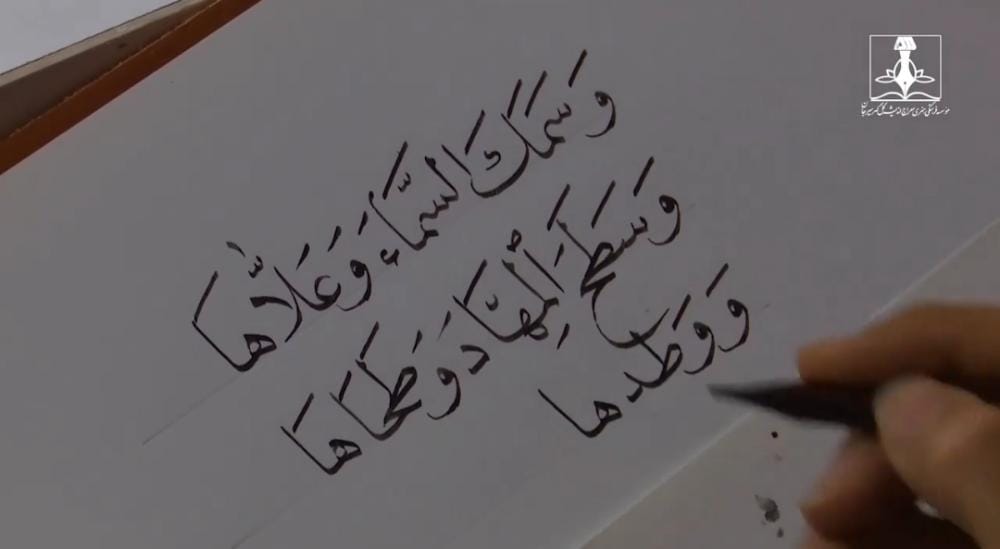 وَسَمَكَ السَّمَاءَ وَعَلَّاهَا
وَسَطَحَ الْمِهَادَ وَطَحَاهَا
وَوَطَدها